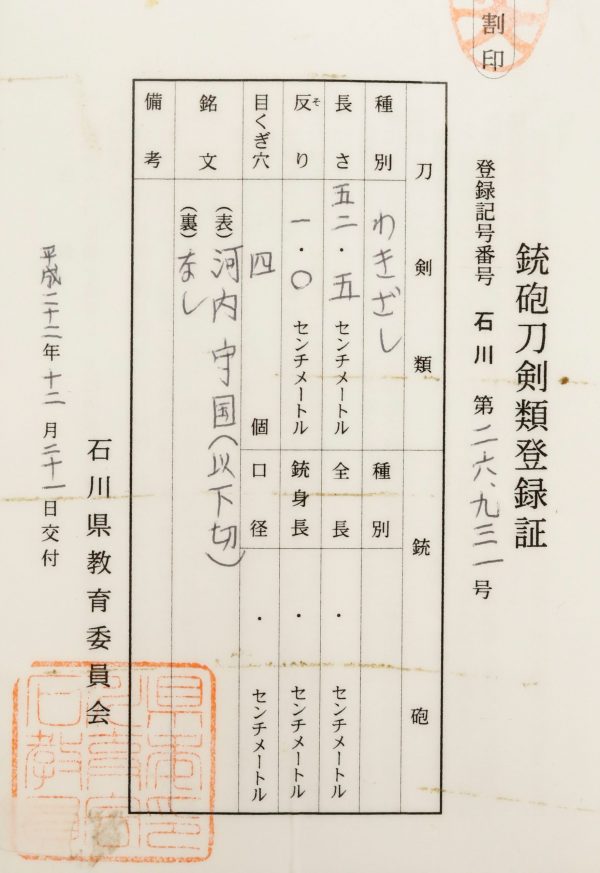 割印
銃砲刀剣類登録証
登録記号番号 石川 第二六、九三一号
刀剣類 銃砲
種別 わきざし 種別
長さ 五二・五 センチメートル 全長 ・ センチメートル
反り 一・〇 センチメートル 銃身長 ・ センチメートル
そ
目くぎ穴 四 個 口径 ・ センチメートル
銘文 (表)河内守国(以下切)
(裏)なし
備考
石川県教育委員会
平成二十二年十二月二十一日交付